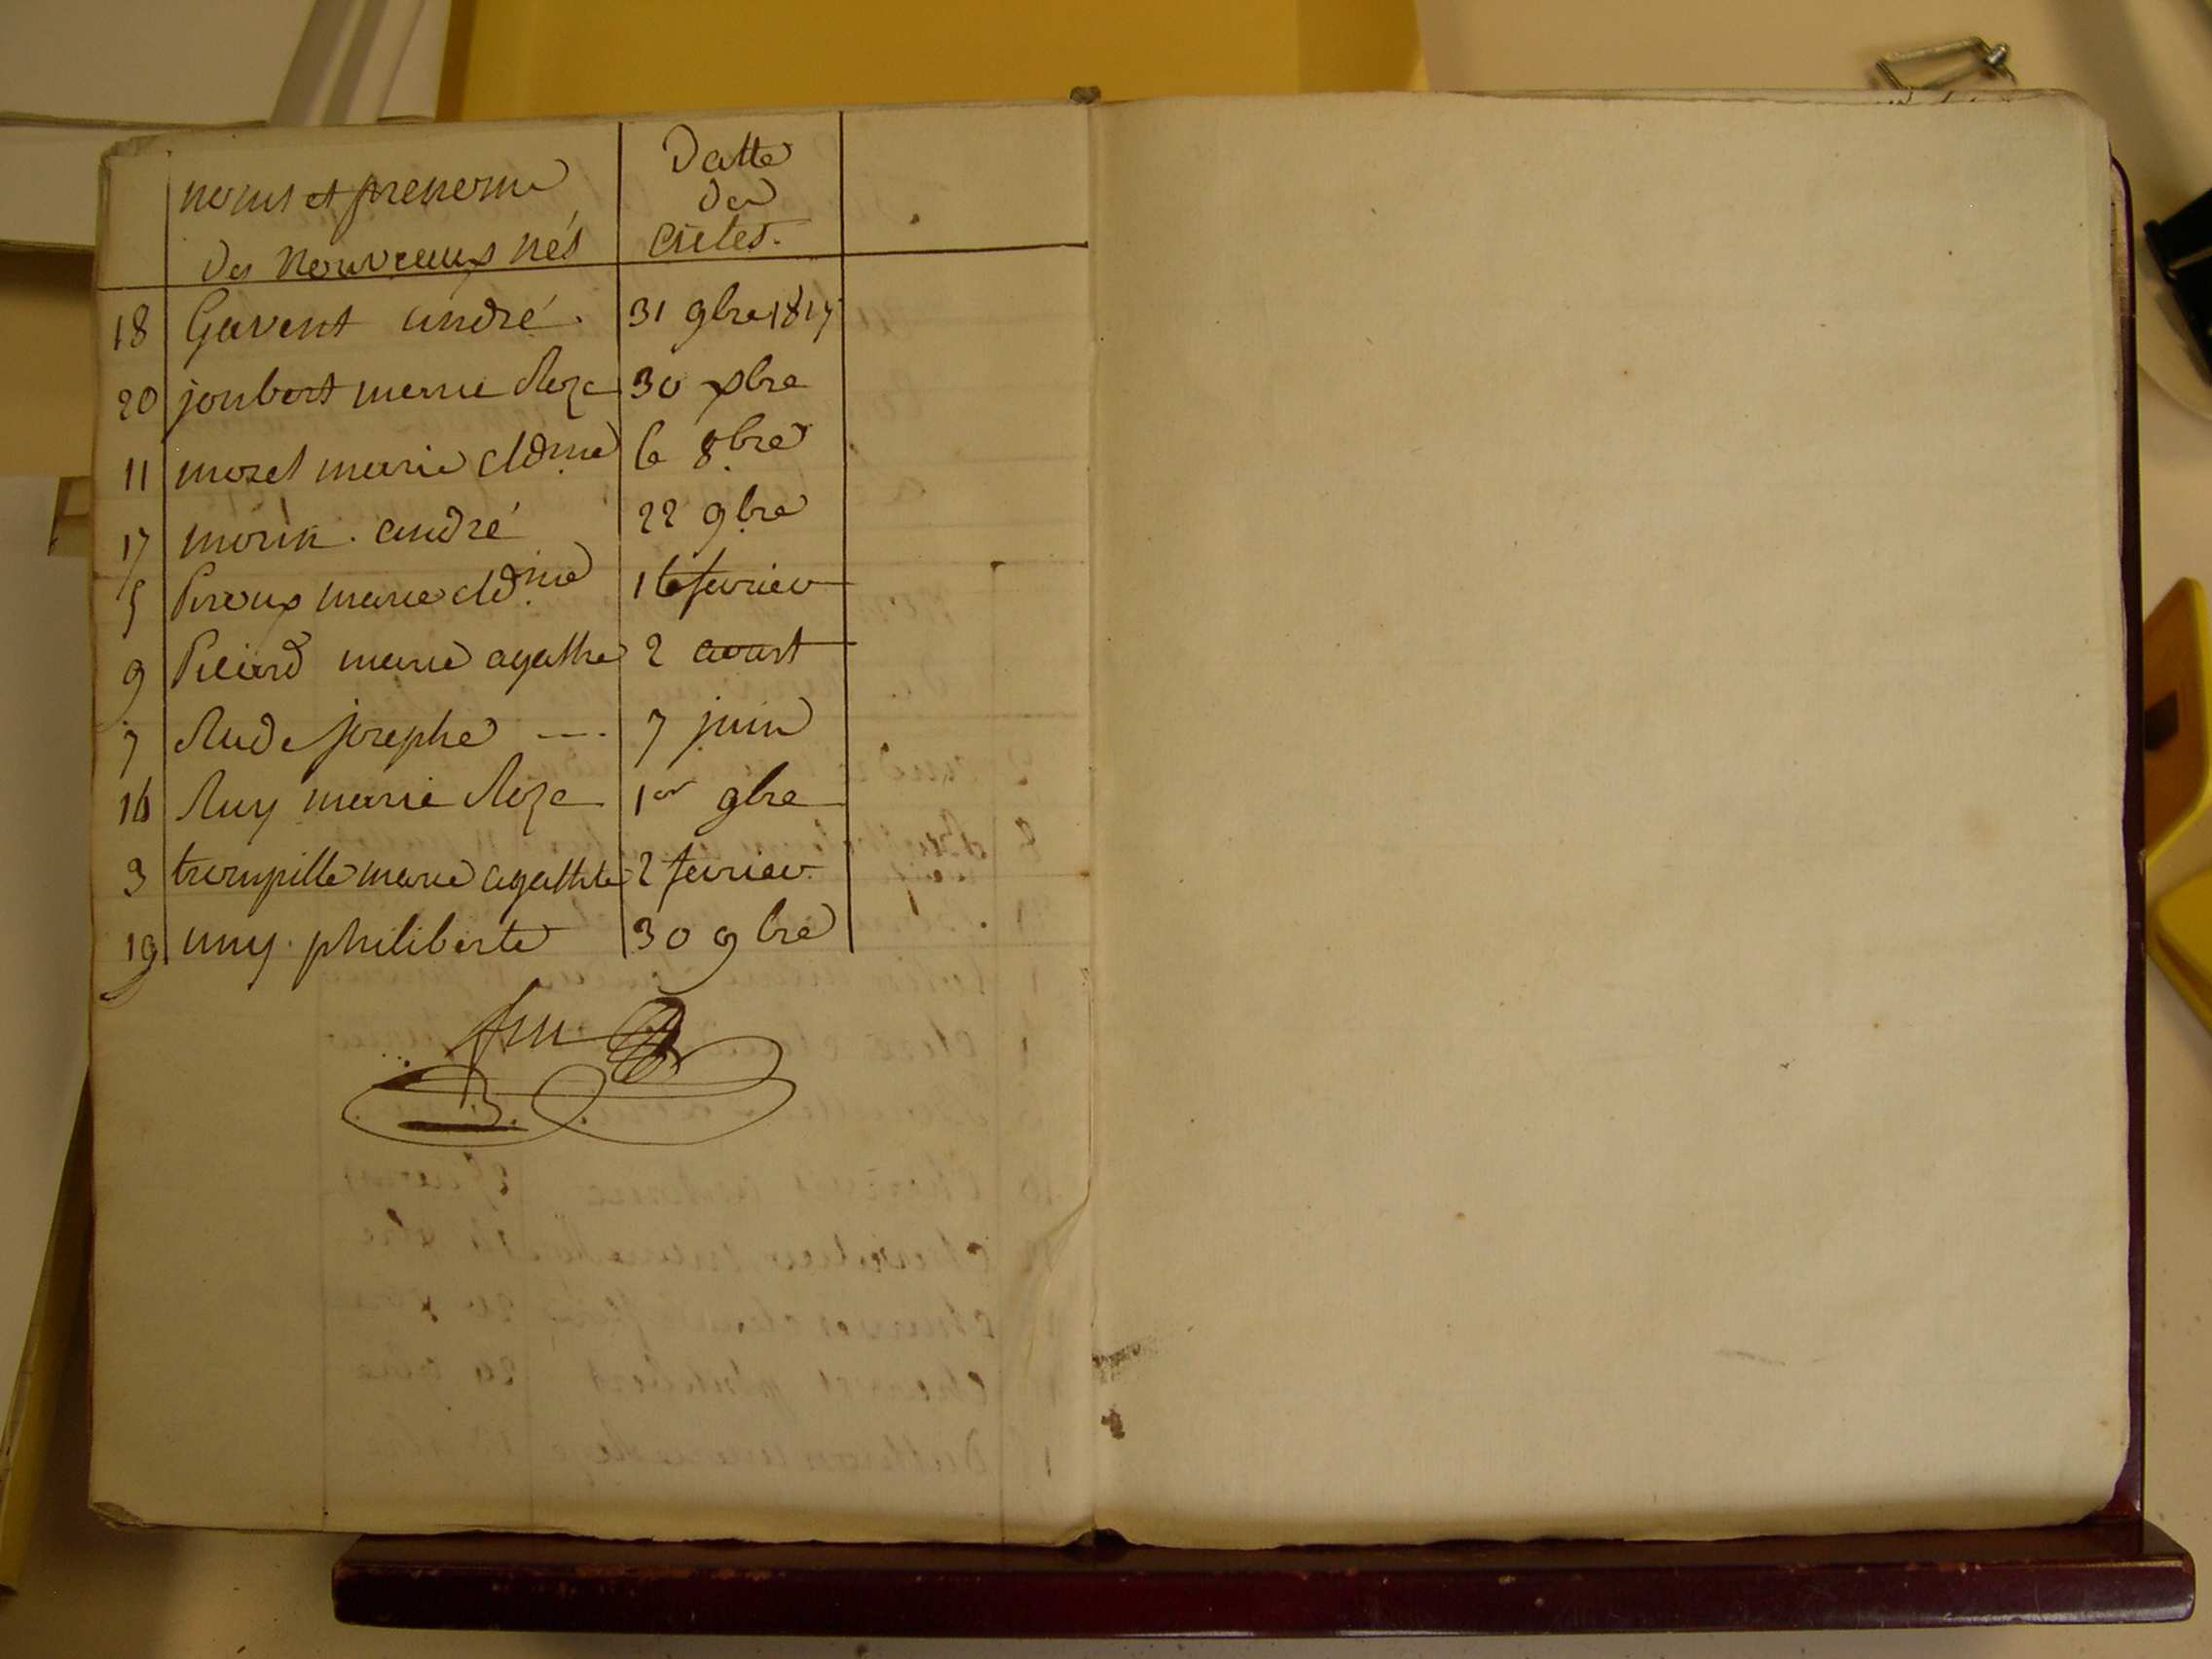 noms et prenoms
des nouveaux nés
Datte
des
actes.
18 Gavent andré. 31 9bre 1817
20 joubert marie Roze 30 xbre
11 morel marie cld.ine 6 8bre
17 morin. andré 22 9bre
5 Piroux marie cld.ine 16 fevrier
9 Picard marie agathe 2 aoust
7 Rude josephe ---- 7 juin
16 Ruy marie Roze 1er 9bre
3 trompille marie agathe 2 fevrier
19 uny. philiberte 30 9bre
fin.